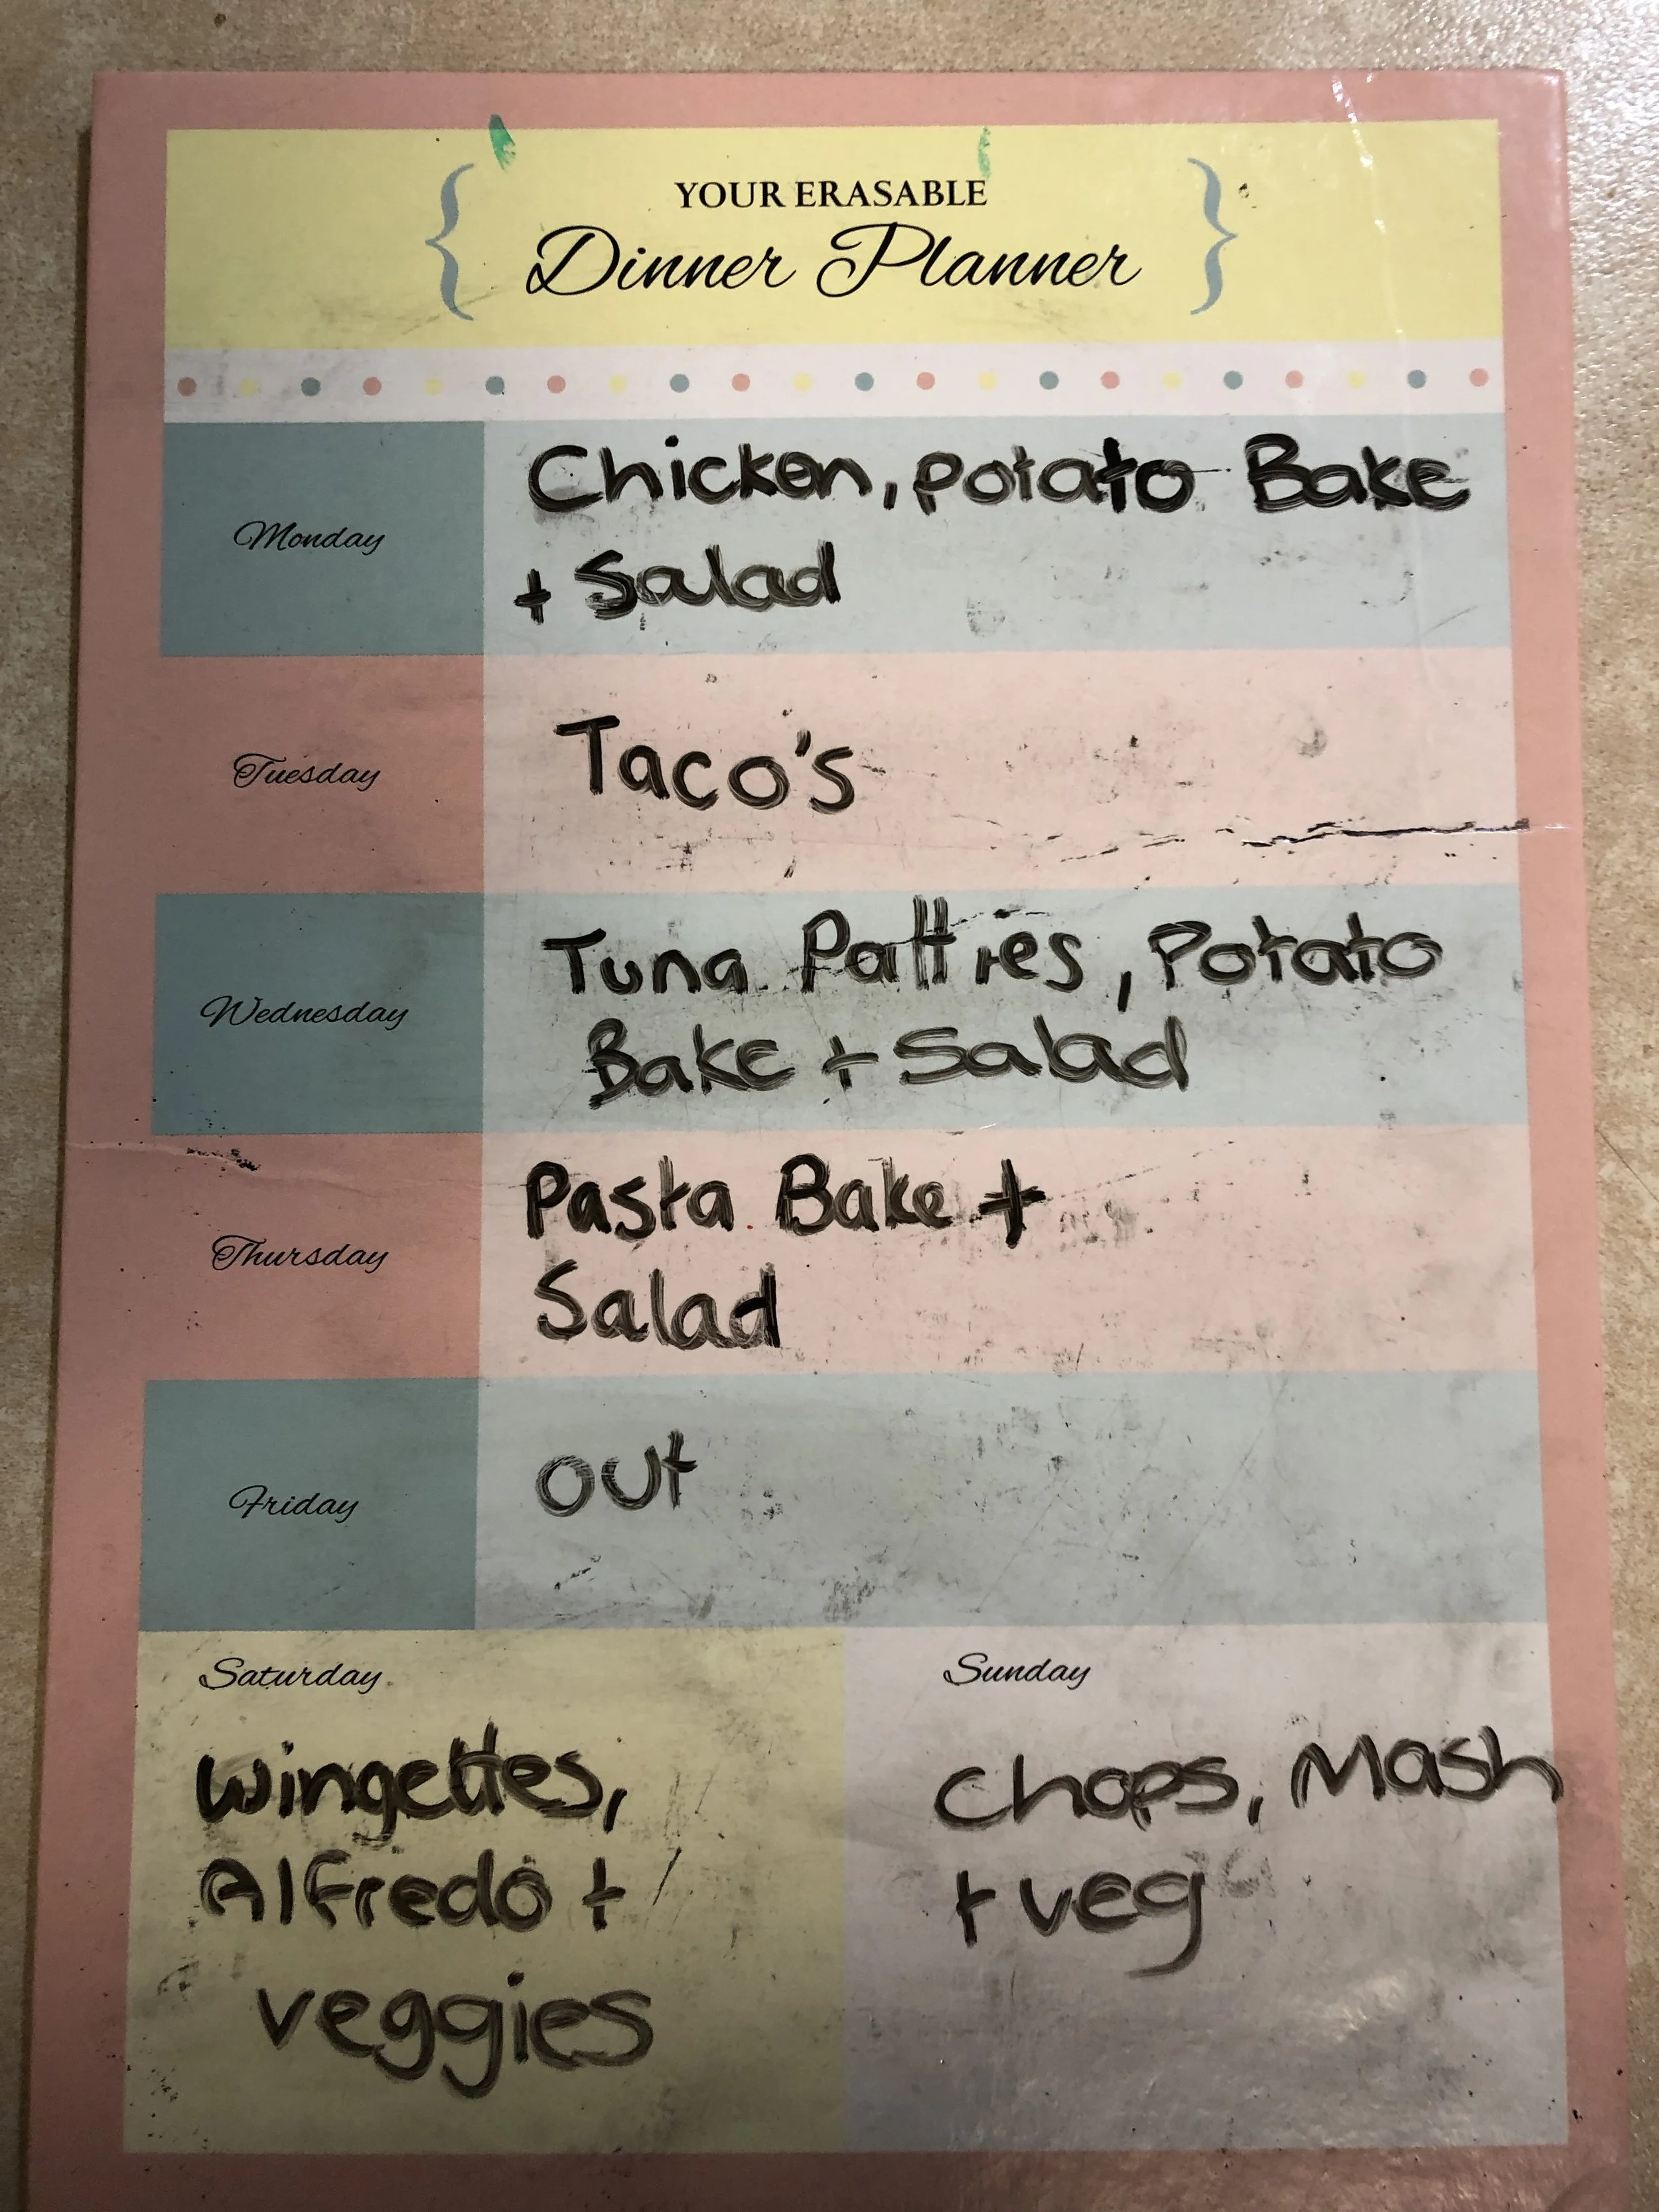 YOUR ERASABLE
Dinner Planner
Monday
Chicken, Potato Bake
+ Salad
Tuesday
Taco's
Wednesday
Tuna Patties, Potato
Bake + Salad
Thursday
Pasta Bake +
Salad
Friday
out
Saturday
Wingettes,
Alfredo +
veggies
Sunday
Chops, Mash
+ veg